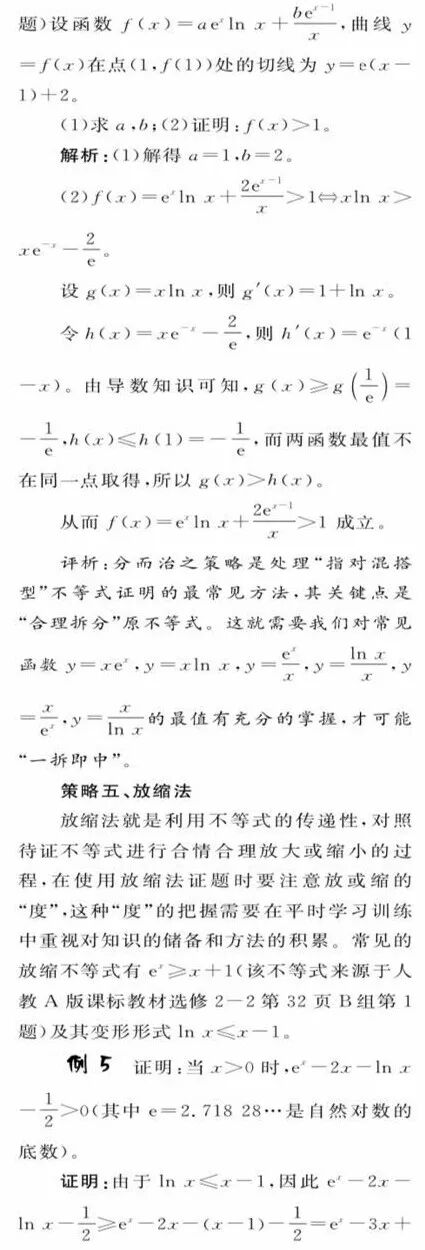 题)设函数 f(x)=ae^x ln x+be^{x-1}/x,曲线 y
=f(x)在点(1,f(1))处的切线为 y=e(x-
1)+2。
(1)求 a,b;(2)证明:f(x)>1。
解析:(1)解得 a=1,b=2。
(2)f(x)=e^x ln x+2e^{x-1}/x>1⇔xln x>
xe^{-x}-2/e。
设 g(x)=xln x,则 g′(x)=1+ln x。
令 h(x)=xe^{-x}-2/e,则 h′(x)=e^{-x}(1
-x)。由导数知识可知,g(x)≥g(1/e)=
-1/e,h(x)≤h(1)=-1/e,而两函数最值不
在同一点取得,所以 g(x)>h(x)。
从而 f(x)=e^x ln x+2e^{x-1}/x>1 成立。
评析:分而治之策略是处理“指对混搭
型”不等式证明的最常见方法,其关键点是
“合理拆分”原不等式。这就需要我们对常见
函数 y=xe^x,y=xln x,y=e^x/x,y=ln x/x,y
=x/e^x,y=x/ln x的最值有充分的掌握,才可能
“一拆即中”。
策略五、放缩法
放缩法就是利用不等式的传递性,对照
待证不等式进行合情合理放大或缩小的过
程,在使用放缩法证题时要注意放或缩的
“度”,这种“度”的把握需要在平时学习训练
中重视对知识的储备和方法的积累。常见的
放缩不等式有 e^x≥x+1(该不等式来源于人
教 A 版课标教材选修 2-2 第 32 页 B组第 1
题)及其变形形式 ln x≤x-1。
例 5 证明:当 x>0 时,e^x-2x-ln x
-1/2>0(其中 e=2.718 28…是自然对数的
底数)。
证明:由于 ln x≤x-1,因此 e^x-2x-
ln x-1/2≥e^x-2x-(x-1)-1/2=e^x-3x+